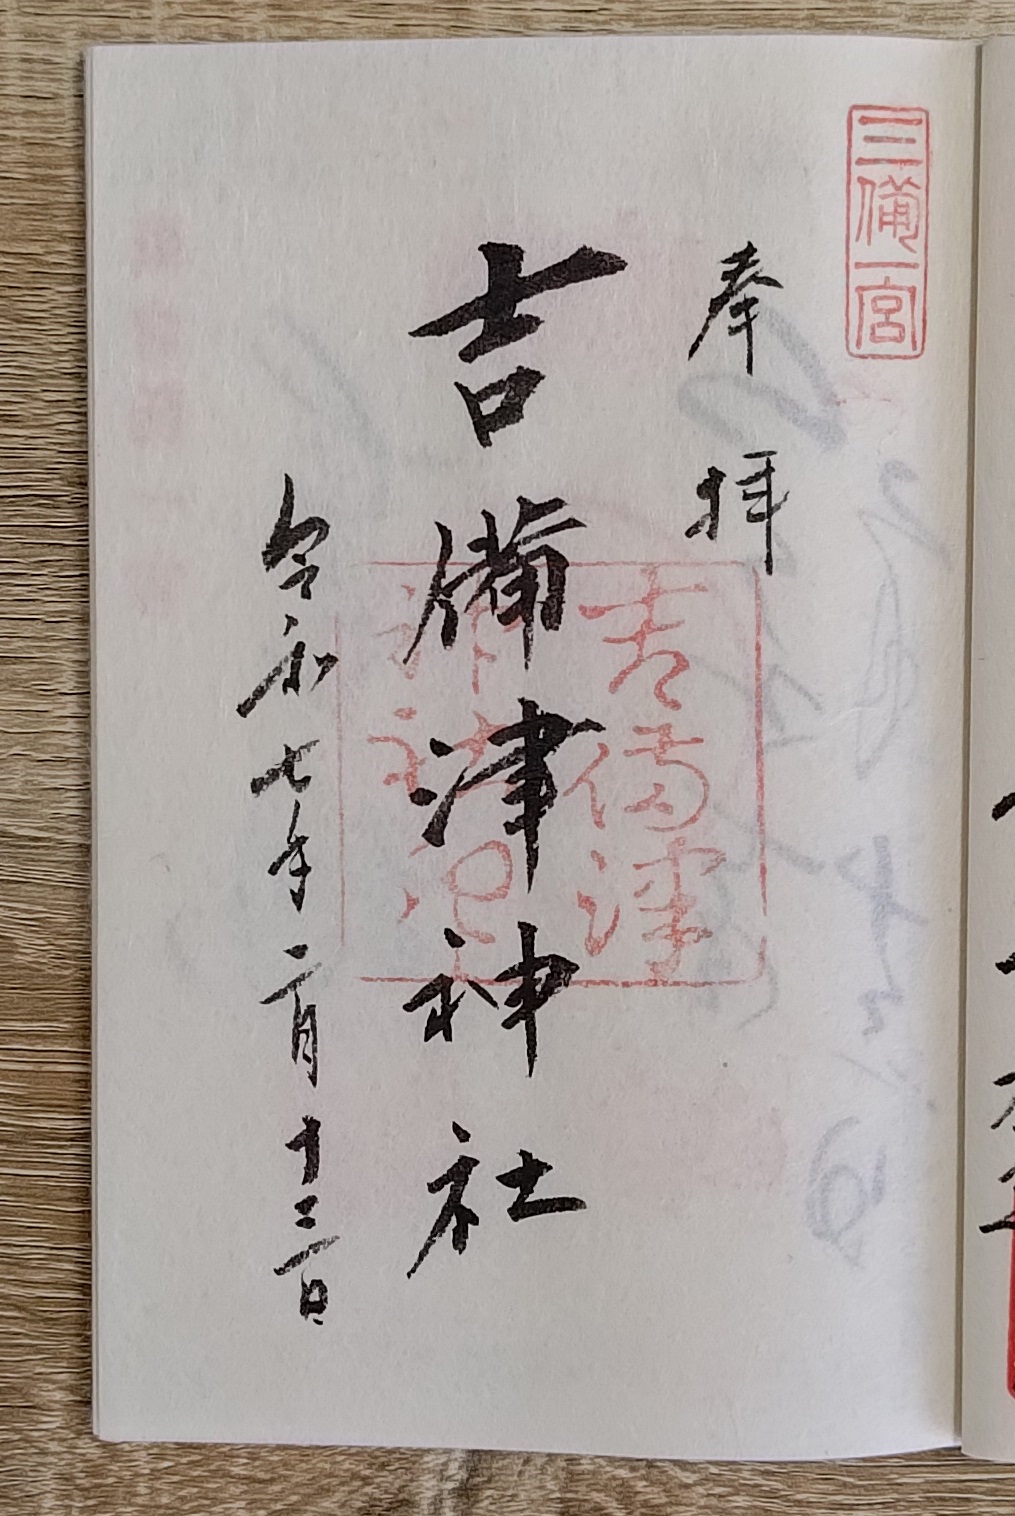 三備一宮
奉拝
吉備津神社
吉備津
神社記
令和七年二月十三日